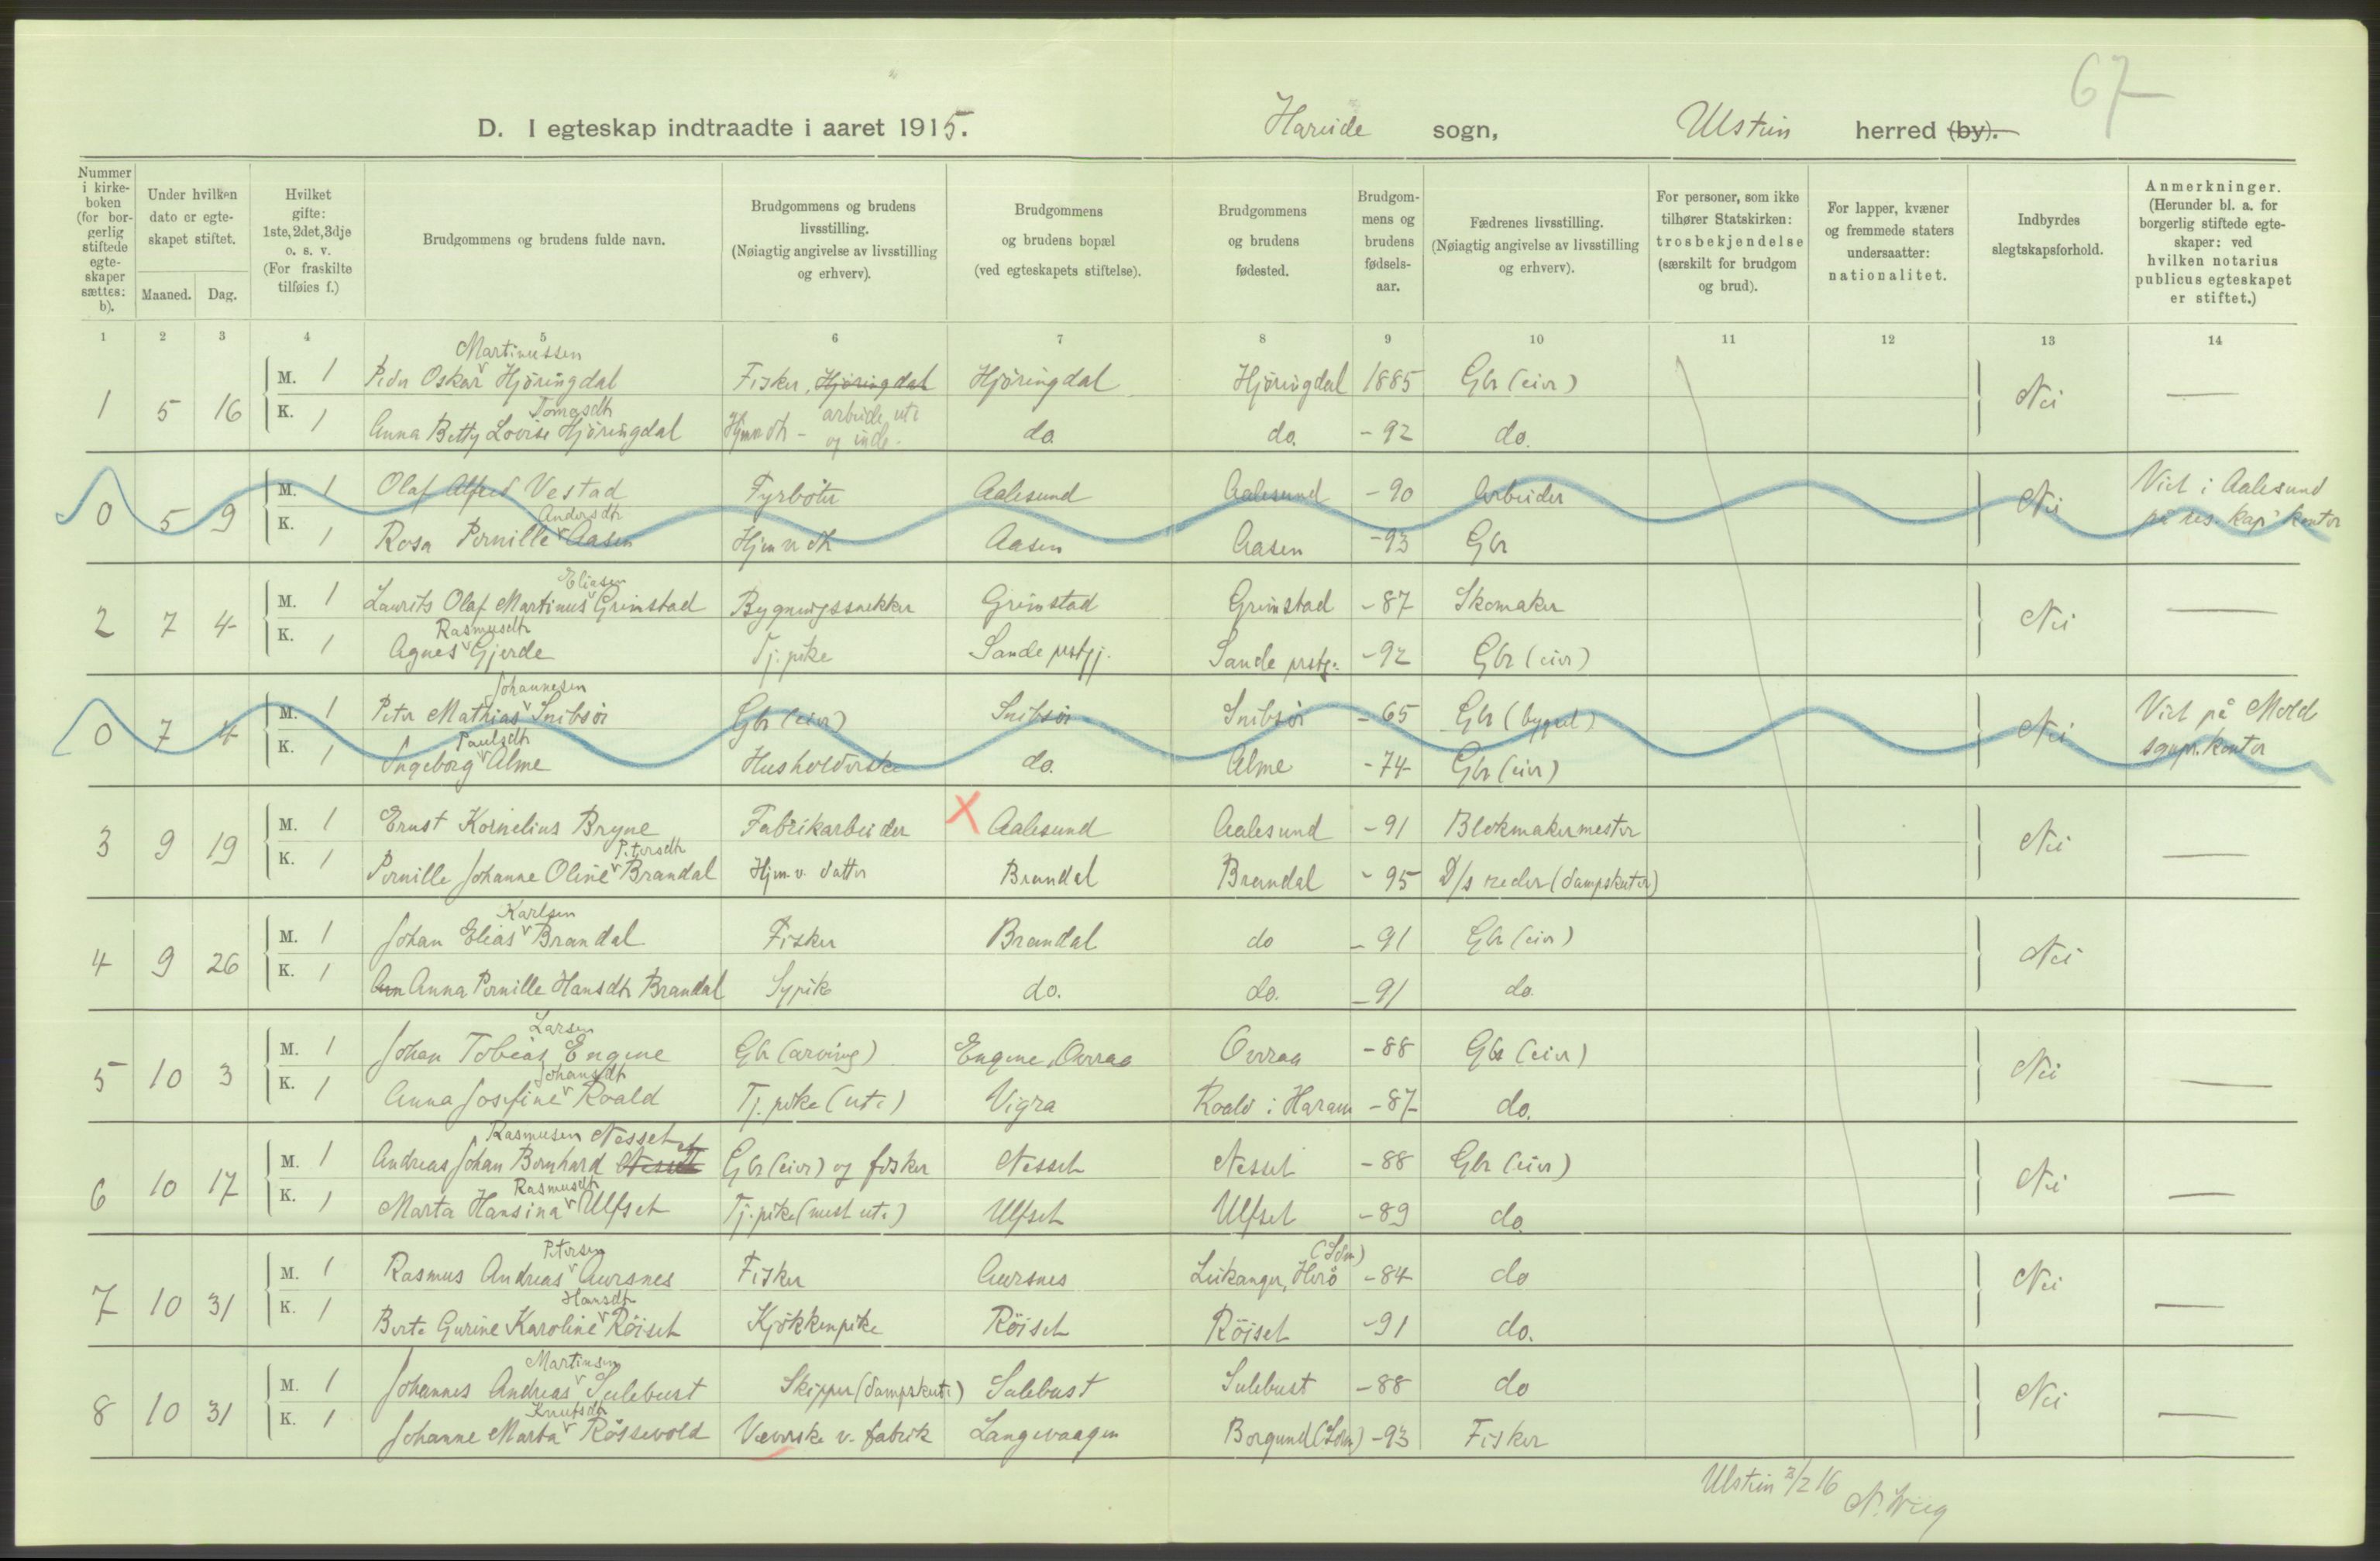 67
D. I egteskap indtraadte i aaret 1915. Hareide sogn, Ulstein herred (by).
Nummer i kirke-boken (for bor-gerlig stiftede egte-skaper sættes: b).
Under hvilken dato er egte-skapet stiftet.
Maaned. Dag.
Hvilket gifte: 1ste, 2det, 3dje o. s. v. (For fraskilte tilføies f.)
Brudgommens og brudens fulde navn.
Brudgommens og brudens livsstilling. (Nøiagtig angivelse av livsstilling og erhverv).
Brudgommens og brudens bopæl (ved egteskapets stiftelse).
Brudgommens og brudens fødested.
Brudgom-mens og brudens fødsels-aar.
Fædrenes livsstilling. (Nøiagtig angivelse av livsstilling og erhverv).
For personer, som ikke tilhører Statskirken: trosbekjendelse (særskilt for brudgom og brud).
For lapper, kvæner og fremmede staters undersaatter: nationalitet.
Indbyrdes slegtskapsforhold.
Anmerkninger. (Herunder bl. a. for borgerlig stiftede egte-skaper: ved hvilken notarius publicus egteskapet er stiftet.)
1 2 3 4 5 6 7 8 9 10 11 12 13 14
Martinussen
1 5 16 M. 1 Peder Oskar Hjöringdal Fisker, Hjöringdal Hjöringdal Hjöringdal 1885 Gbr (eier) Nei —
Tomasdtr
K. 1 Anna Betty Lovise Hjöringdal Hjem dtr - arbeide ute og inde. do. do. - 92 do.
0 5 9 M. 1 Olaf Alfred Vestad Fyrböter Aalesund Aalesund - 90 Arbeider Nei Viet i Aalesund
Andersdtr
K. 1 Rosa Pernille Aasen Hjem v dtr Aasen Aasen - 93 Gbr på res. kap' kontor
Eliasen
2 7 4 M. 1 Laurits Olaf Martinus Grimstad Bygningssnekker Grimstad Grimstad - 87 Skomaker Nei —
Rasmusdtr
K. 1 Agnes Gjerde Tj. pike Sande prstgj. Sande prstg. - 92 Gbr (eier)
Johannesen
0 7 4 M. 1 Peter Mathias Sneibsör Gbr (eier) Sneibsör Sneibsör - 65 Gbr (bygsel) Nei Viet på Mold
Paulsdtr
K. 1 Ingeborg Alme Husholderske do. Alme - 74 Gbr (eier) sognpr. kontor
3 9 19 M. 1 Ernst Kornelius Bryne Fabrikarbeider X Aalesund Aalesund - 91 Blokmakermester Nei —
Petersdtr
K. 1 Pernille Johanne Oline Brandal Hjem v. datter Brandal Brandal - 95 D/s reder (dampskuter)
Karlsen
4 9 26 M. 1 Johan Elias Brandal Fisker Brandal do - 91 Gbr (eier) Nei
K. 1 Ann Anna Pernille Hansdtr Brandal Sypike do. do. - 91 do.
Larsen
5 10 3 M. 1 Johan Tobias Engene Gbr (arving) Engene, Overaa Overaa - 88 Gbr (eier) Nei —
Johansdtr
K. 1 Anna Josefine Roald Tj. pike (ute) Vigra Roald i Haram - 87 do.
Rasmusen Nesset
6 10 17 M. 1 Andreas Johan Bernhard Gbr (eier) og fisker Nesset Nesset - 88 Gbr (eier) Nei —
Rasmusdtr
K. 1 Marta Hansina Ulfset Tj. pike (mest ute) Ulfset Ulfset - 89 do.
Petersen
7 10 31 M. 1 Rasmus Andreas Aursnes Fisker Aursnes Leikanger, Herö (Sdm) - 84 do Nei —
Hansdtr
K. 1 Berte Gurine Karoline Röiset Kjökkenpike Röiset Röiset - 91 do.
Martinsen
8 10 31 M. 1 Johannes Andreas Sulebust Skipper (dampskute) Sulebust Sulebust - 88 do Nei —
Knutsdtr
K. 1 Johanne Marta Rössevold Væverske v. fabrik Langevaagen Borgund (Sdm) - 93 Fisker
Ulstein 3/2 16
N. Wiig